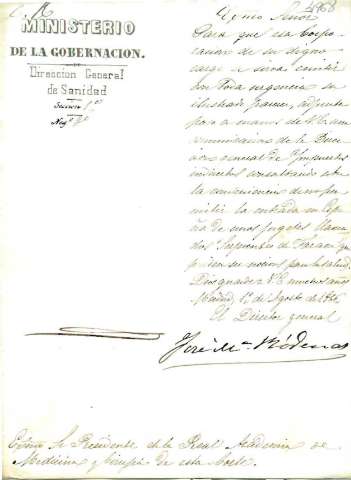 4468
MINISTERIO
DE LA GOBERNACION.
Direccion General
de Sanidad
Seccion 1ª
Negº 2º
Excmo Señor
Para que esa Corpo-
racion de su digno
cargo se sirva emitir
con toda urgencia su
ilustrado, adjunta
paso a manos de V.E. una
comunicacion de la Direc-
cion General de Impuestos
indirectos consultando sobre
la conveniencia de no per-
mitir la entrada en Espa-
ña de unos juguetes llama-
dos Serpientes de Faraon
por ser nocivos para la salud.
Dios guarde a V.E. muchos años
Madrid, 1º de Agosto de
El Director general
José Mª Ródenas
Excmo Sr. Presidente de la Real Academia de
Medicina y Cirugia de esta Corte.